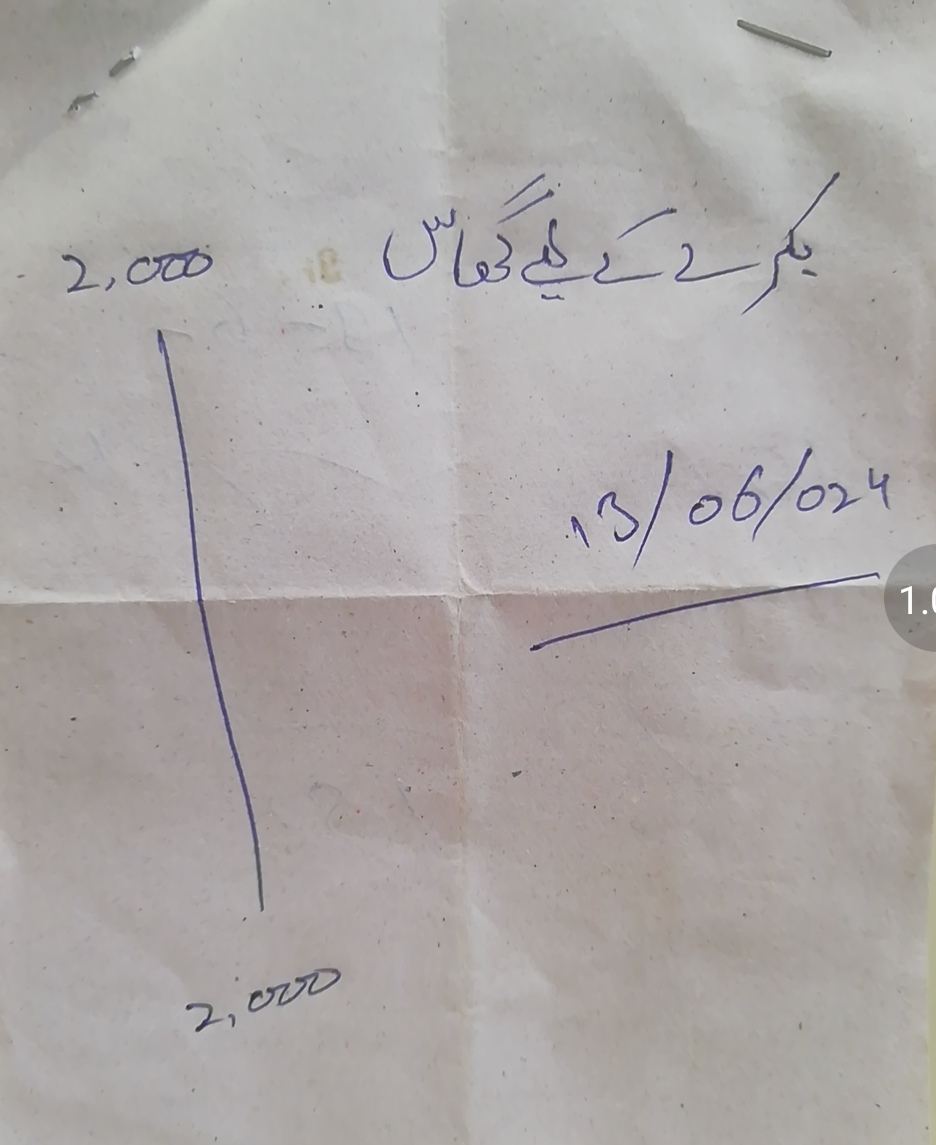 بکرے کے لیے گھاس 2,000
13/06/024
2,000